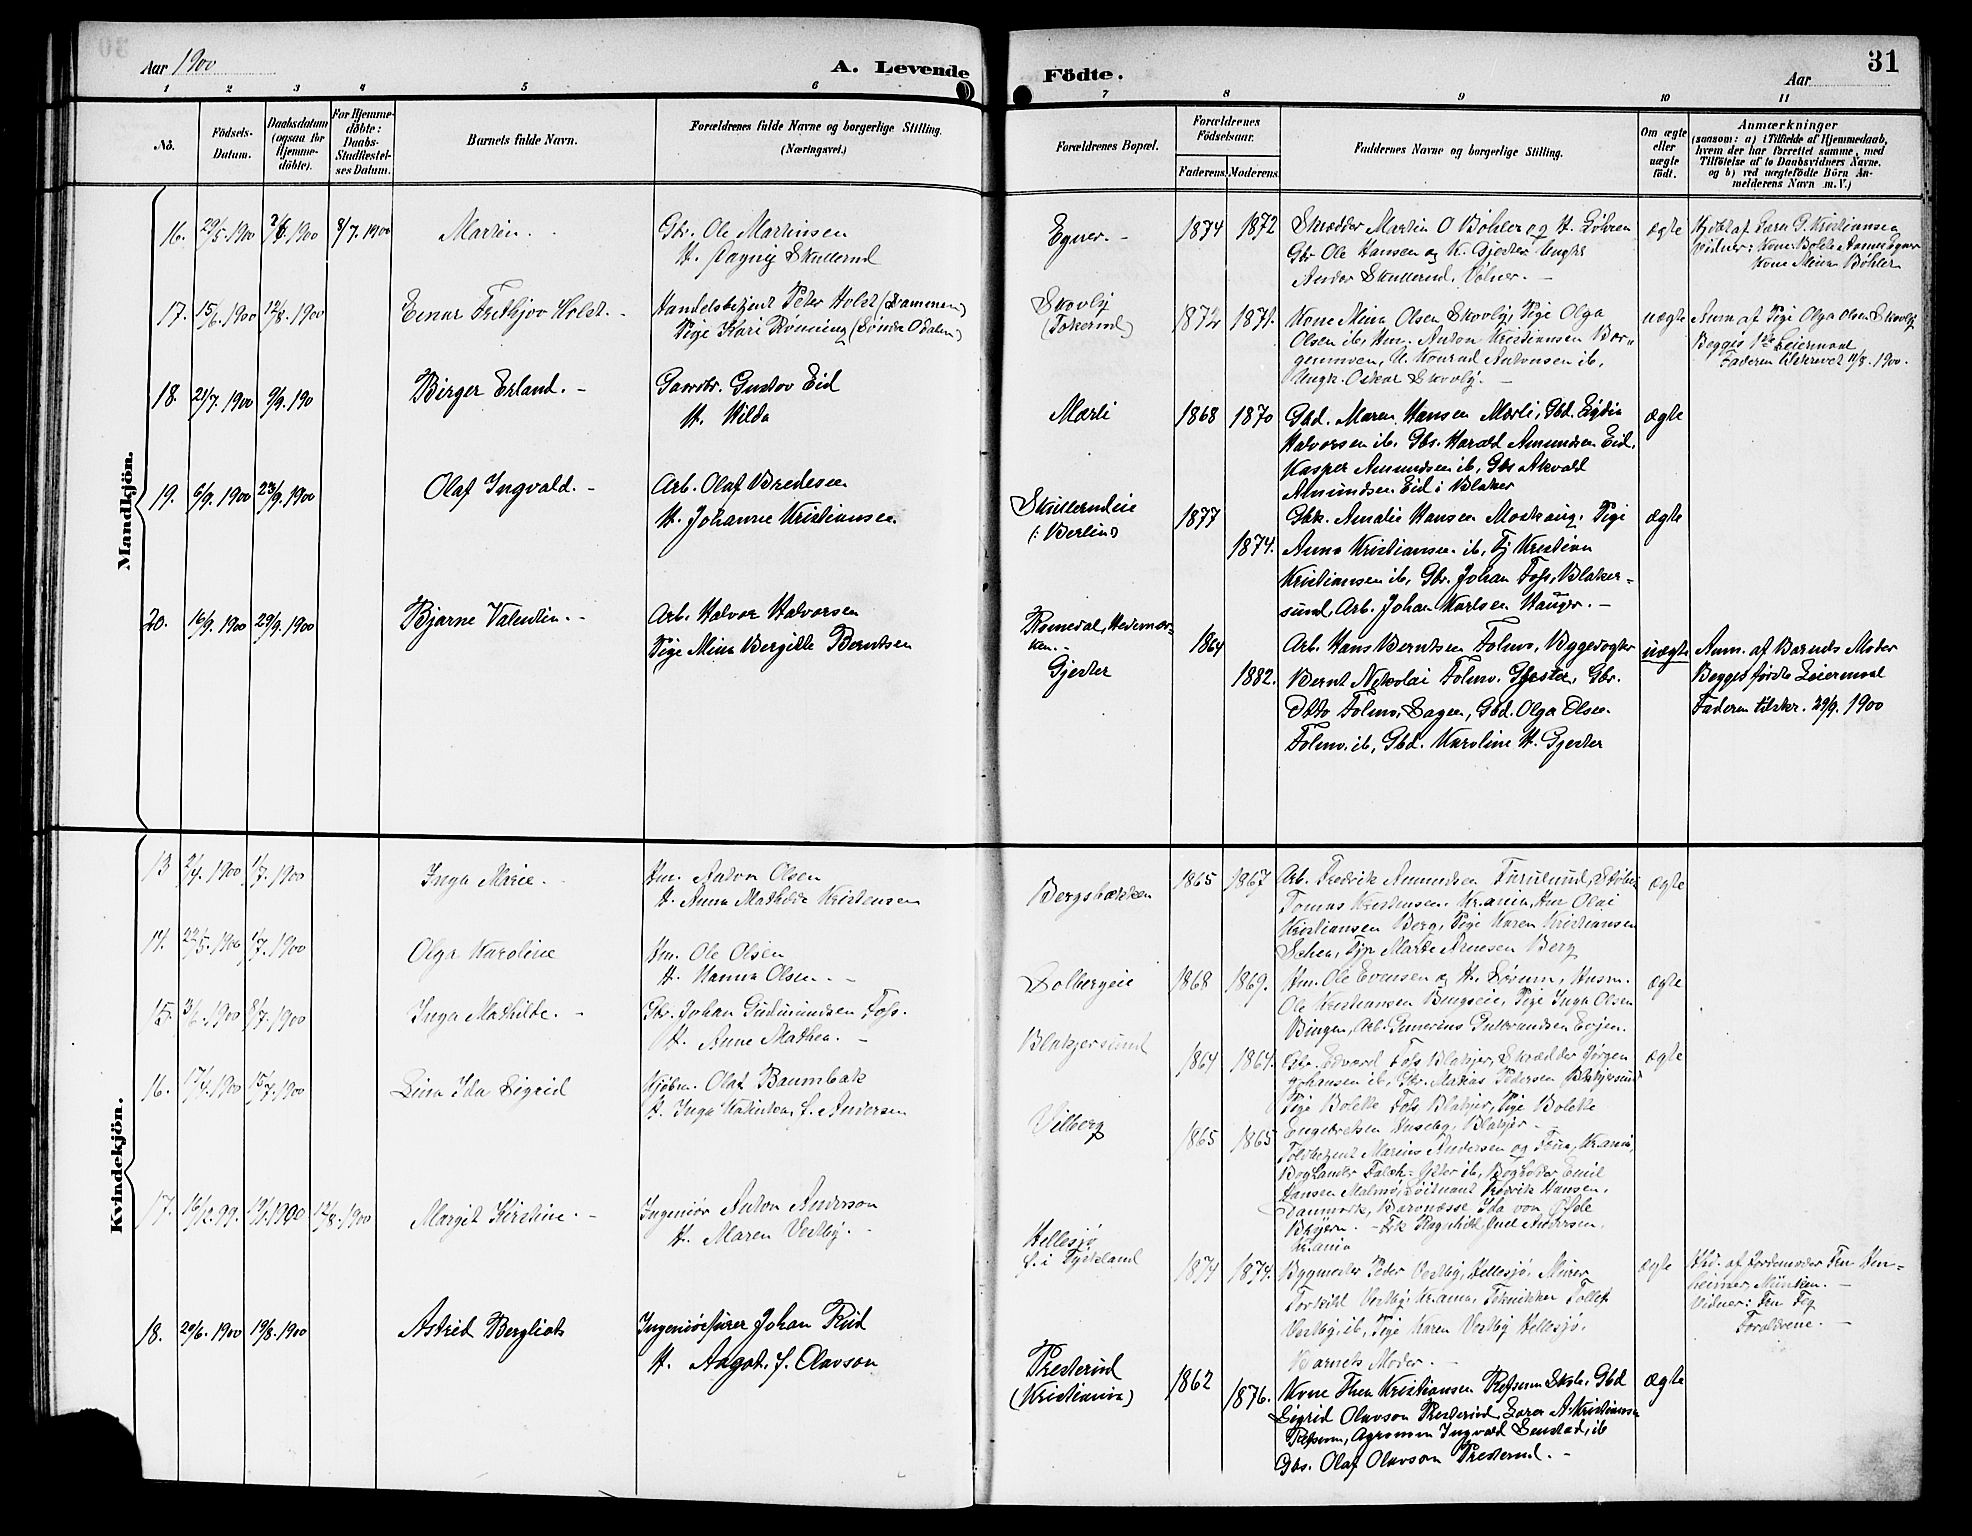 Aar 1900
A. Levende
Födte.
Aar
31
1 2 3 4 5 6 7 8 9 10 11
No.
Födsels-
Datum.
Daabsdatum
(ogsaa for
Hjemme-
döbte).
For Hjemme-
döbte:
Daabs-
Stadfæstel-
ses Datum.
Barnets fulde Navn.
Forældrenes fulde Navne og borgerlige Stilling.
(Næringsvei.)
Forældrenes Bopæl.
Forældrenes
Födselsaar.
Faderens Moderens
Faddernes Navne og borgerlige Stilling.
Om ægte
eller
uægte
födt.
Anmærkninger
(saasom: a) i Tilfælde af Hjemmedaab,
hvem der har forrettet samme, med
Tilföielse af to Daabsvidners Navne.
og b) ved uægtefödte Börn An-
melderens Navn m. V.)
Mandkjön.
16. 29/5. 1900 1900 8/7. 1900 Martin.
Gbr. Ole Martinsen
H. Dagny Skullerud
Egner.
1874 1872
Skrædder Martin O Bøhler og H. Løkren
Gbr Ole Hansen og K. Gjester Ungk
Ander Skullerud, Volner. -
ægte
Vidner: Kone Bolette Egner
Kone Mina Bøhler
17. 15/6. 1900 12/8. 1900 Einar Frithjov Holst. -
Handelsbetjent Peter Holst (Drammen)
Pige Kari Rønning (Søndre Odalen)
Skovly
1872 1871.
Kone Mina Olsen Skovly, Pige Olga
Olsen ib, Hm. Anton Kristiansen Bor-
genmoen, U. Konrad Antonsen ib,
Ungk. Oskar Skovly. -
uægte
Anm af Pige Olga Olsen Skovly
Begges 1ste Leiermaal
Faderen tilskrevet 11/8. 1900.
18. 21/7. 1900 9/9. 190 Birger Erland. -
Gaardbr. Gustav Eid
H. Hilda
Mærli
1868 1870
Gbd. Maren Hansen Mærli, Gbd. Eydia
Halvorsen ib, Gbs. Harald Amundsen Eid,
Kasper Amundsen ib, Gbs Akvald
Amundsen Eid i Blaker
ægte
19. 6/9. 1900 23/9. 1900 Olaf Ingvald. -
Arb. Olaf Bredesen
H. Johanne Kristiansen
Skullerudeie
(: Berlin)
1877
1874.
Gbk. Amalie Hansen Moshaug, Pige
Anna Kristiansen ib, Tj Kristian
Kristiansen ib, Gbr. Johan Foss, Blaker-
sund, Arb. Johan Karlsen Hauger. -
ægte
20. 16/9. 1900 29/9. 1900 Bjarne Valentin. -
Arb. Halvor Halvorsen
Pige Mina Bergitte Berntsen
Romedal, Hedemar-
ken. -
Gjester
1864
1882.
Arb. Hans Berntsen Folmo, Byggefogter
Bernt Nikolai Folmo, Gjester, Gbr.
Otto Folmo, Hagen, Gbd. Olga Olsen
Folmo. ib, Gbd. Karoline H. Gjester
uægte
Anm. af Barnets Moder
Begges første Leiermaal
Faderen tilskr. 29/9. 1900
Kvindekjön.
13 2/4. 1900 1/7. 1900 Inga Marie. -
Hm. Anton Olsen
H. Anna Mathilde Kristensen
Bergsbækken
1865 1867
Arb. Fredrik Amundsen Furulund,
Tomas Kristensen, Kr.ania, Hm Olai
Kristiansen Berg, Pige Karen Kristiansen
Berg
ægte
14. 1900 1/7. 1900 Olga Karoline
Hm. Ole Olsen
H. Hanna Olsen. -
Solbergeie
1868 1869.
Hm. Ole Evensen og H. Sørum, Husm.
Ole Kristiansen Bingseie, Pige Inga Olsen
Bingen, Arb. Gulbrandsen Evjen.
ægte
15. 3/6. 1900 8/7. 1900 Inga Mathilde. -
Gbr. Johan Gudmundsen Foss.
H. Anne Mathea. -
Blakjersund
1864 1864.
Gbr. Edvard Foss, Blakjer, Skrædder Jørgen
Johansen ib, Gbr. Matias Pedersen Blakjersund
Pige Bolette Foss, Blakjer, Pige Bolette
Engebretsen Huseby, Blakjer. -
ægte
16. 17/4. 1900 15/7. 1900 Lina Ida Sigrid
Kjøbm. Olaf Baumbak
H. Inga Katinka, f. Andersen
Vilberg
1865 1865
Toldbetjent Marius Andersen og Frue, Kr.ania,
ib, Bogholder Emil
Hansen Malmø, Løitnant Fredrik Hansen,
Danmark, Baronesse Ida von
Bayern. - Frk Ragnhild Andersen,
Kr.ania
17. 16/12. 99. 1900 12/8. 1900 Margit Kirstine. -
Ingeniør Anton Anderson
H. Maren Vestby. -
Hellesjø
f. i Tyskland
1874 1874.
Bygmester Peder Vestby, Hellesjø, Murer
Torkild Vestby, Kr.ania, Tekniker Tollef
Vestby, ib, Pige Karen Vestby Hellesjø.
Barnets Moder. -
ægte
Hd. af Jordemoder Fru
München. -
Vidner: Fru
Forældrene. -
18. 29/6. 1900 19/8. 1900 Astrid Bergliot
Johan Ruud
H. Aagot, f. Olavson
Presterud
(Kristiania)
1862
1876.
Kone Thea Kristiansen Refsum Skole, Gbd
Sigrid Olavson Presterud, Lærer A. Kristiansen
Refsum, Agronom Ingvald Senstad, ib
Gbs. Olaf Olavson Presterud. -
ægte